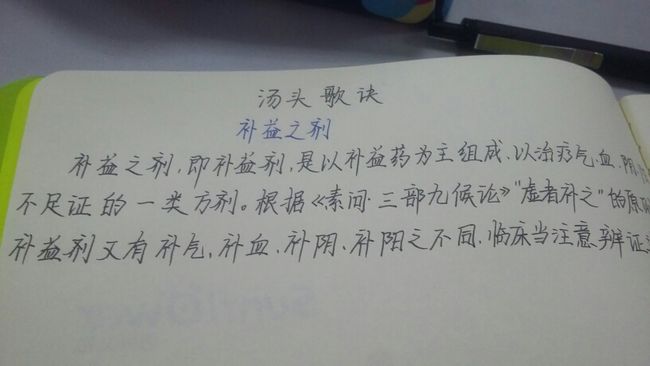 汤头歌诀
补益之剂
补益之剂,即补益剂,是以补益药为主组成,以治疗气、血、阴、
不足证的一类方剂。根据《素问·三部九候论》"虚者补之"的原
补益剂又有补气、补血、补阴、补阳之不同,临床当注意辨证